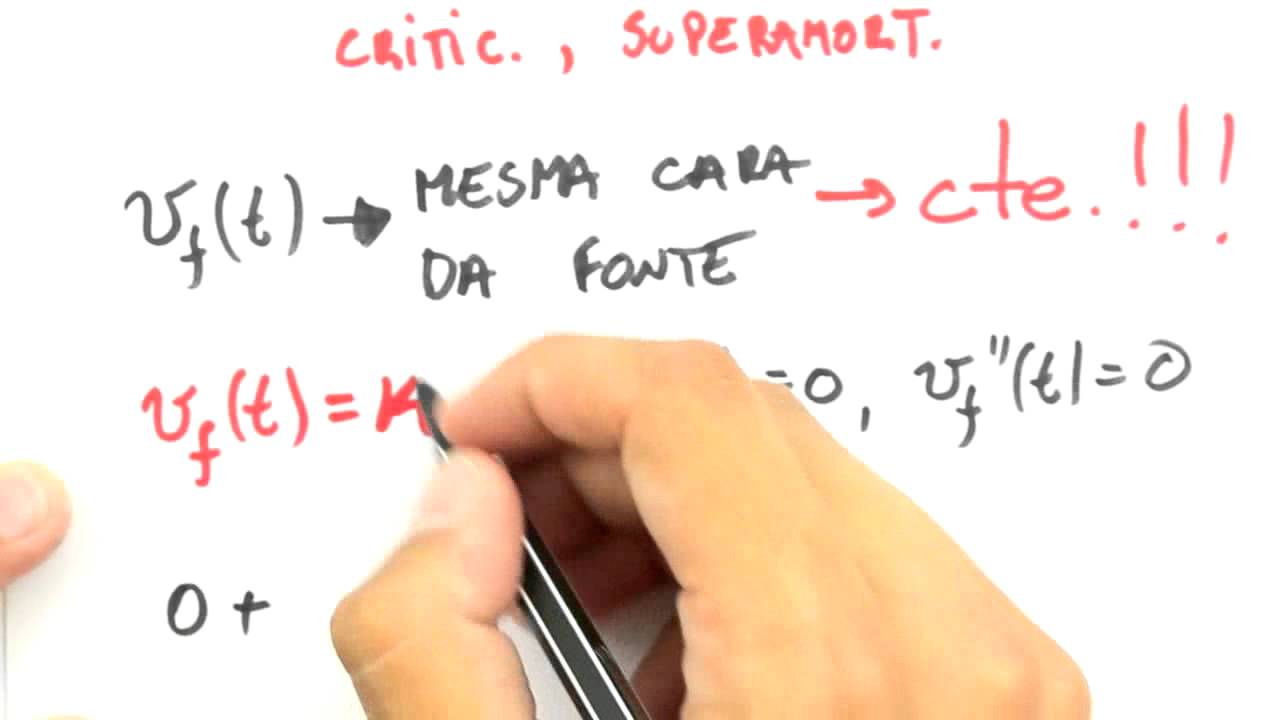 CRITIC., SUPERAMORT.
v_f(t) → MESMA CARA → cte.!!!
DA FONTE
v_f(t) = K =0, v_f''(t)=0
0 +